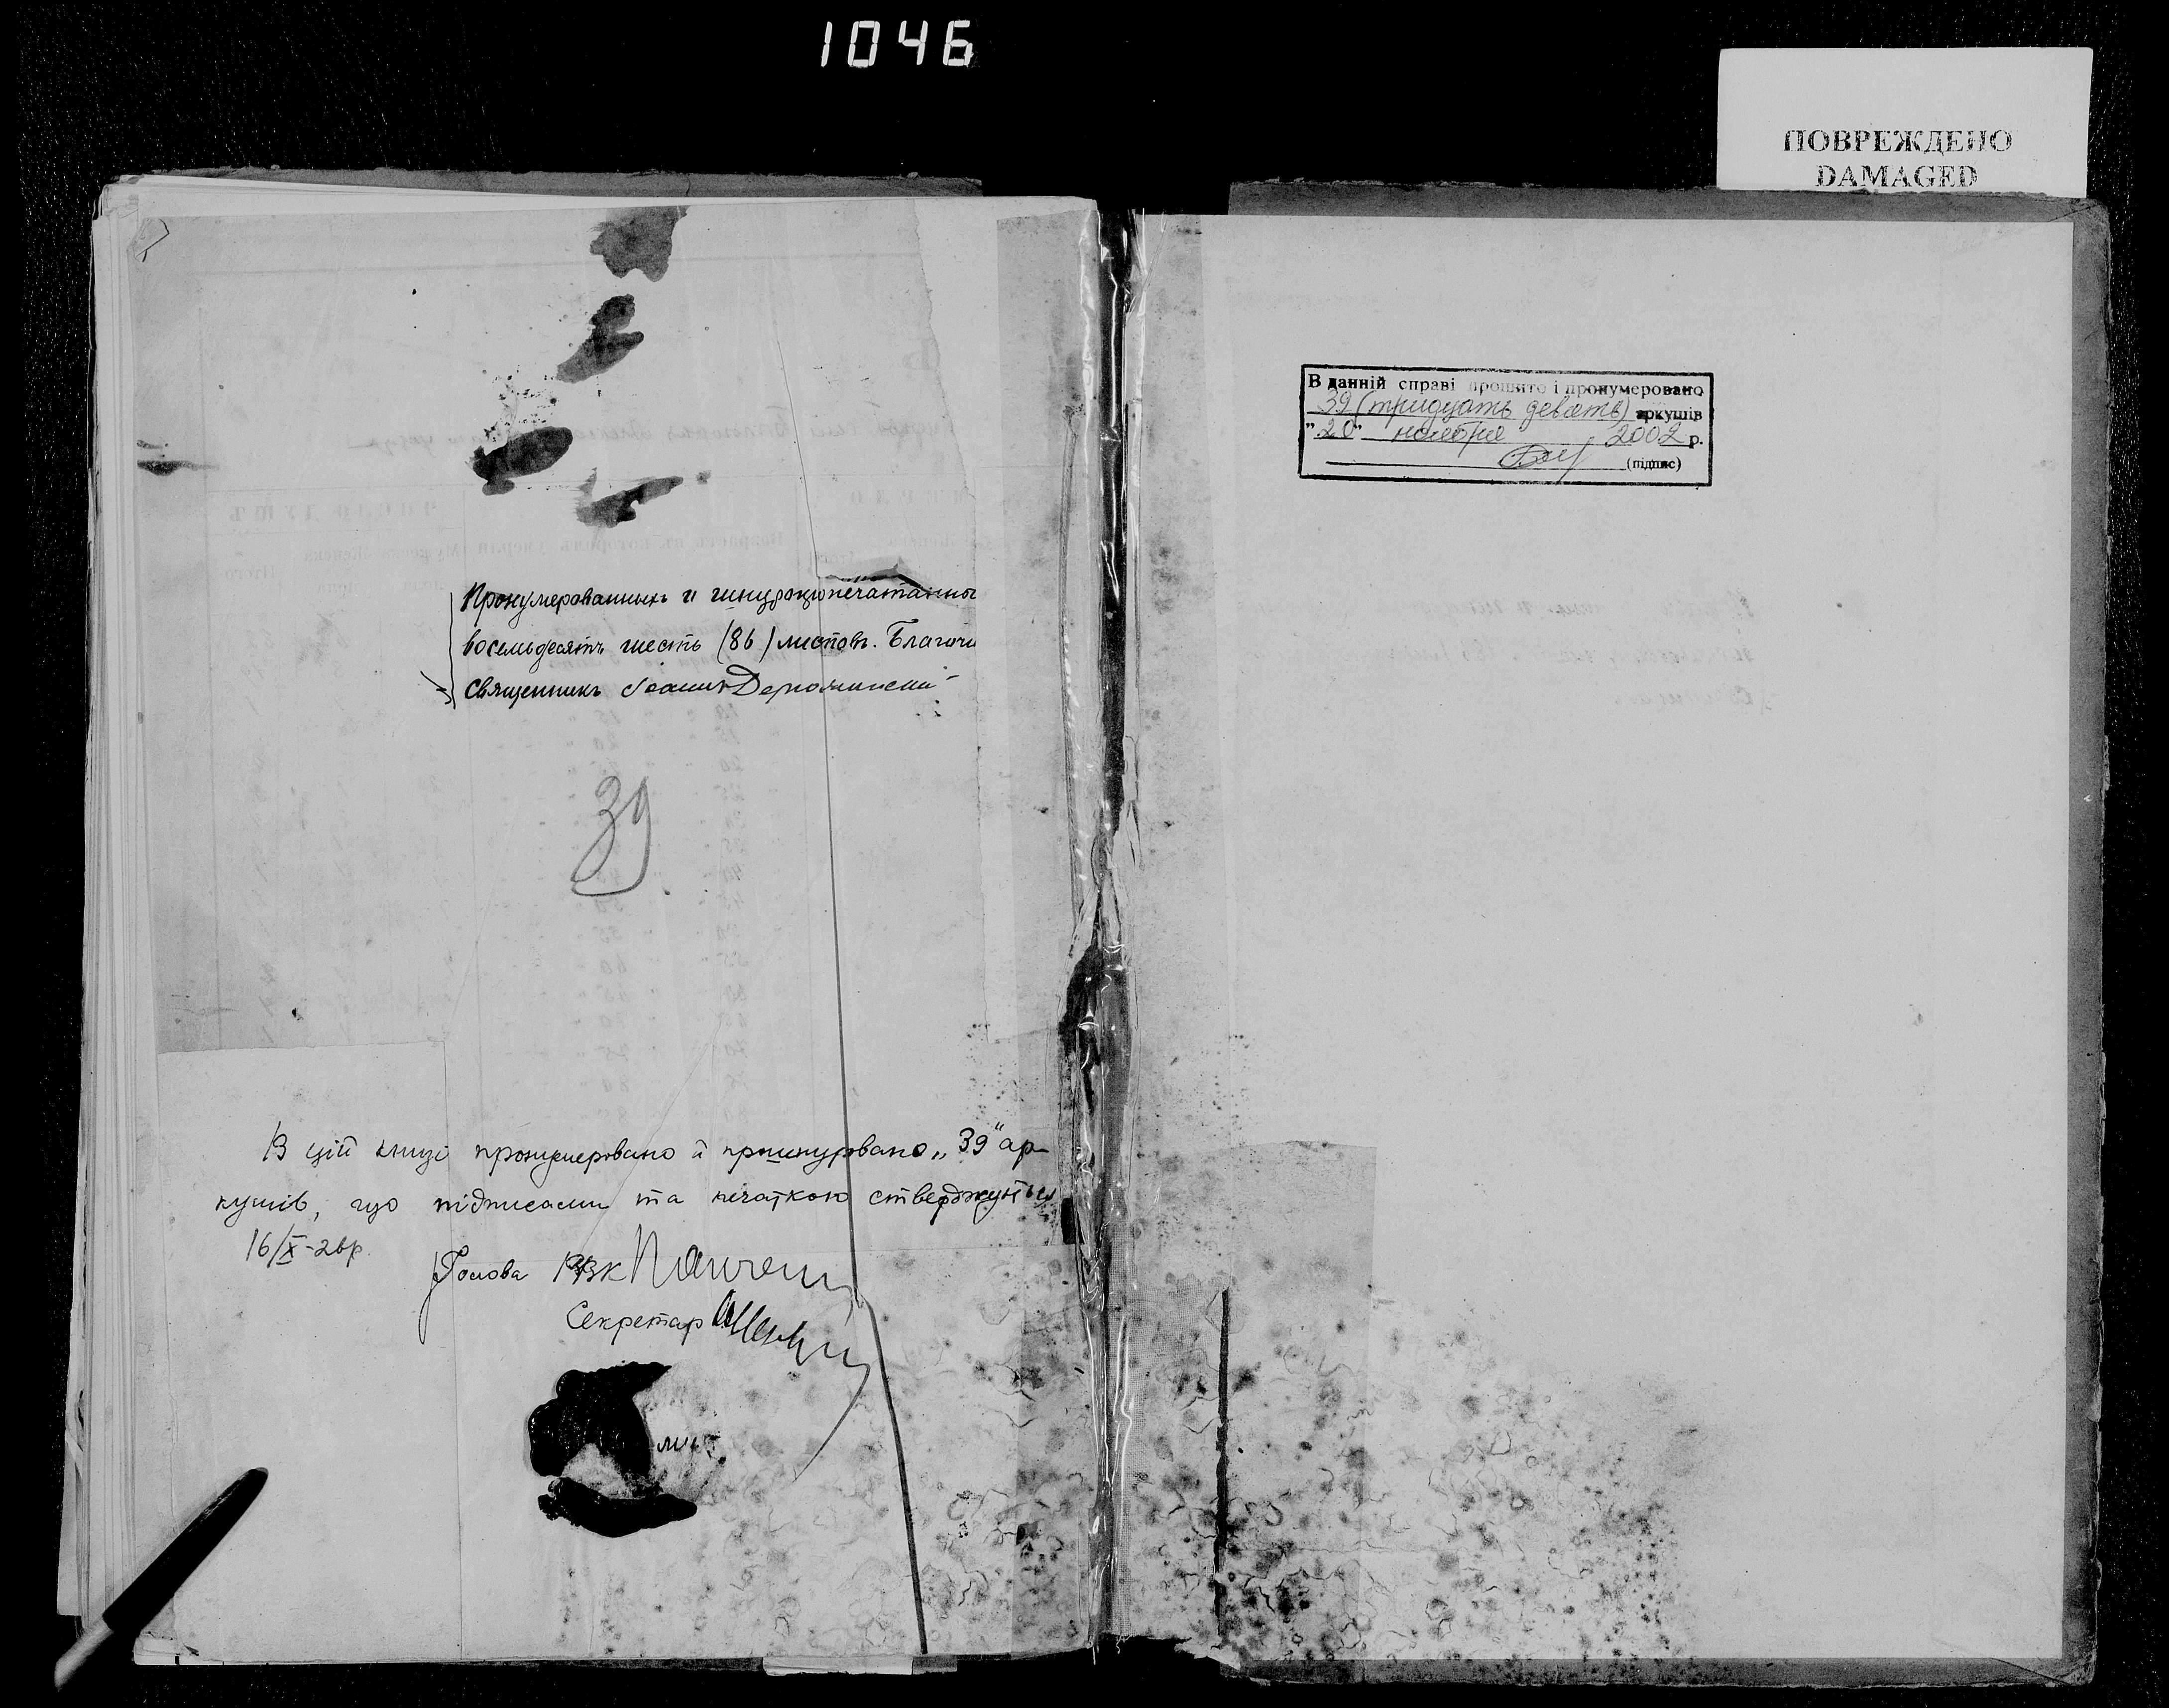 1046
ПОВРЕЖДЕНО
DAMAGED
Пронумерованныхъ и шнурозапечатанны
восемьдесятъ шесть (86) листовъ. Благочи
Священникъ Іоаннъ
39
В цій книзі пронумеровано й прошнуровано „39" ар-
кушів, що підписами та печаткою стверджується
16/X-26р.
Голова РВК
Секретар
В данній справі прошито і пронумеровано
39 (тридцать девять) аркушів
"20" ноября 2002 р.
(підпис)